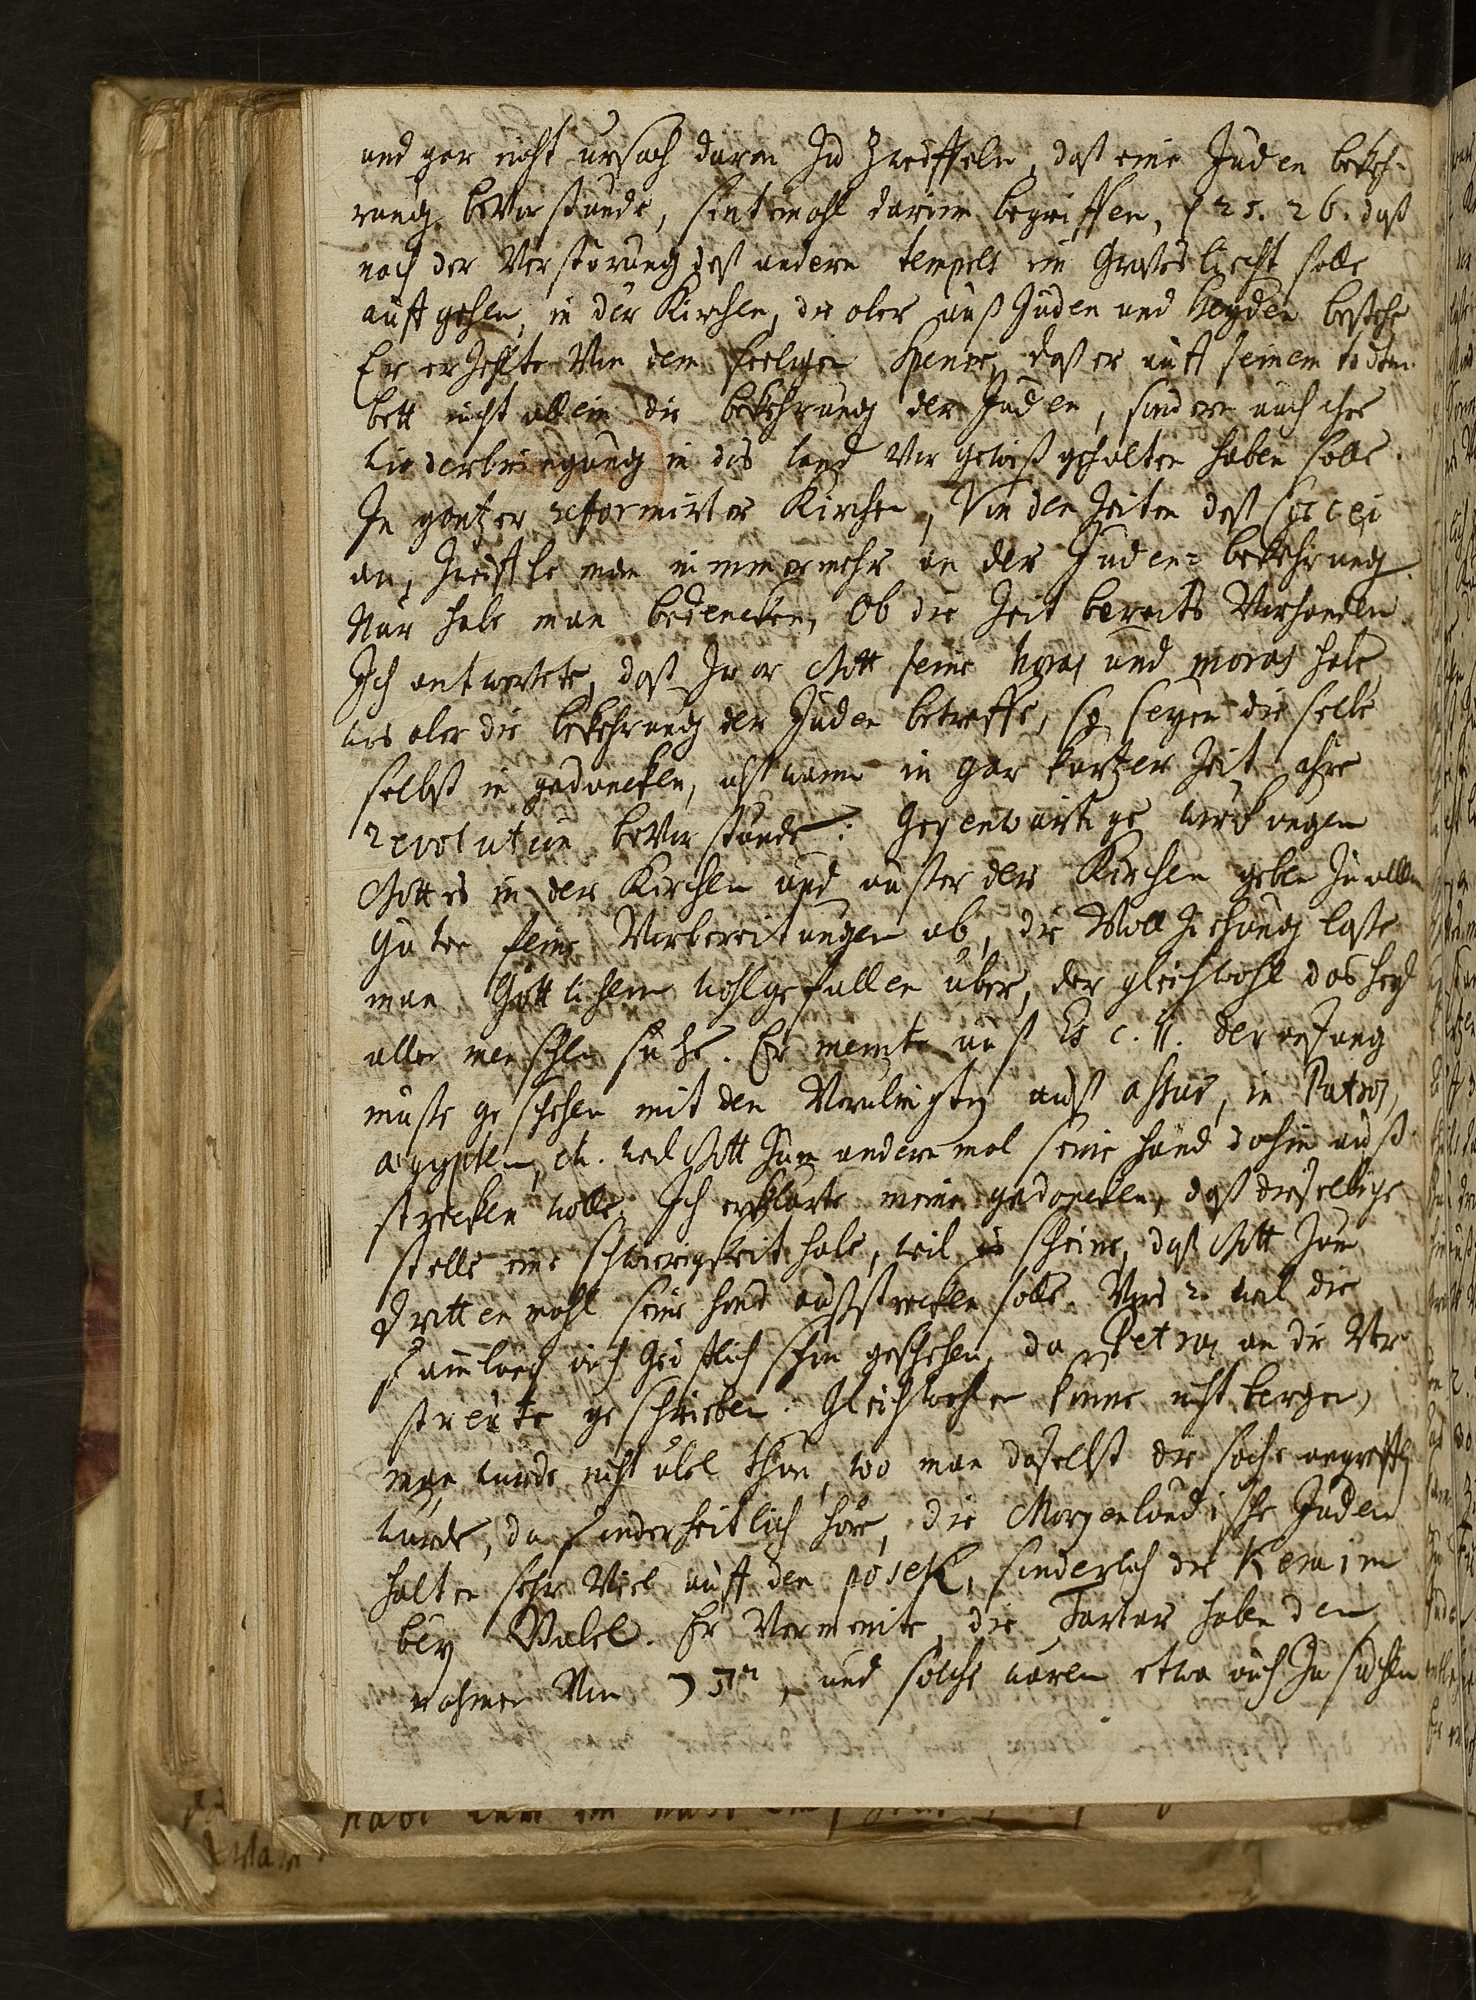 und gar nicht ursach daran zu zweiffeln, daß eine Juden bekeh-
rung bevorstunde, sintemahl darinn begriffen, 25. 26. daß
nach der Verstörung deß andern tempels ein großes liecht solle
auffgehen, in der Kirchen, die aber auß Juden und Heyden bestehe
Er erzehlte von dem seeligen Spener, daß er auff seinem todten
bett nicht allein die bekehrung der Juden, sondern auch ihre
Wiederbringung in das land vor gewiß gehalten haben solle.
In gantzer reformirter Kirchen, von den Zeiten deß Coccei
an, zweiffle man nimmermehr an der Juden-bekehrung.
Nur habe man bedencken, ob die Zeit bereits vorhanden.
Ich antwortete, daß zwar Gott seine horas und moras habe,
was aber die bekehrung der Juden betreffe, so seyen dieselbe
selbst in gedancken, alß wann in gar kurtzer Zeit ihre
revolution bevorstunde: Gegenwärtige würckungen
Gottes in der Kirchen und ausser der Kirchen geben zu allem
guten seine Vorbereitungen ab, die Vollziehung lasse
man Göttlichem wohlgefallen über, der gleichwohl das heyl
aller menschen suche. Er meinte auß Es c. 11. der anfang
müste geschehen mit den auß Assur, in Patros,
ægypten, etc. weil Gott zum andern mal seine hand dahin auß
strecken wolle. Ich erklärte meine gedancken, daß dieselbige
stelle eine schwierigkeit habe, weil es scheine, daß Gott zum
dritten mahl seine hand außstrecken solle. Vors 2. weil die
auch Geistlich schon geschehen, da Petrus an die Ver
streute geschrieben. Gleichwohlen könne nicht bergen,
man würde nicht übel thun, wo man daselbst die sache angreiffen
würde, da sonderheitlich höre, die Morgenländische Juden
halten sehr viel auff den posek, sonderlich die Keraim
bey Babel. Er vermeinte, die Tartar haben den
nahmen von , und solche waren etwa auch zu suchen